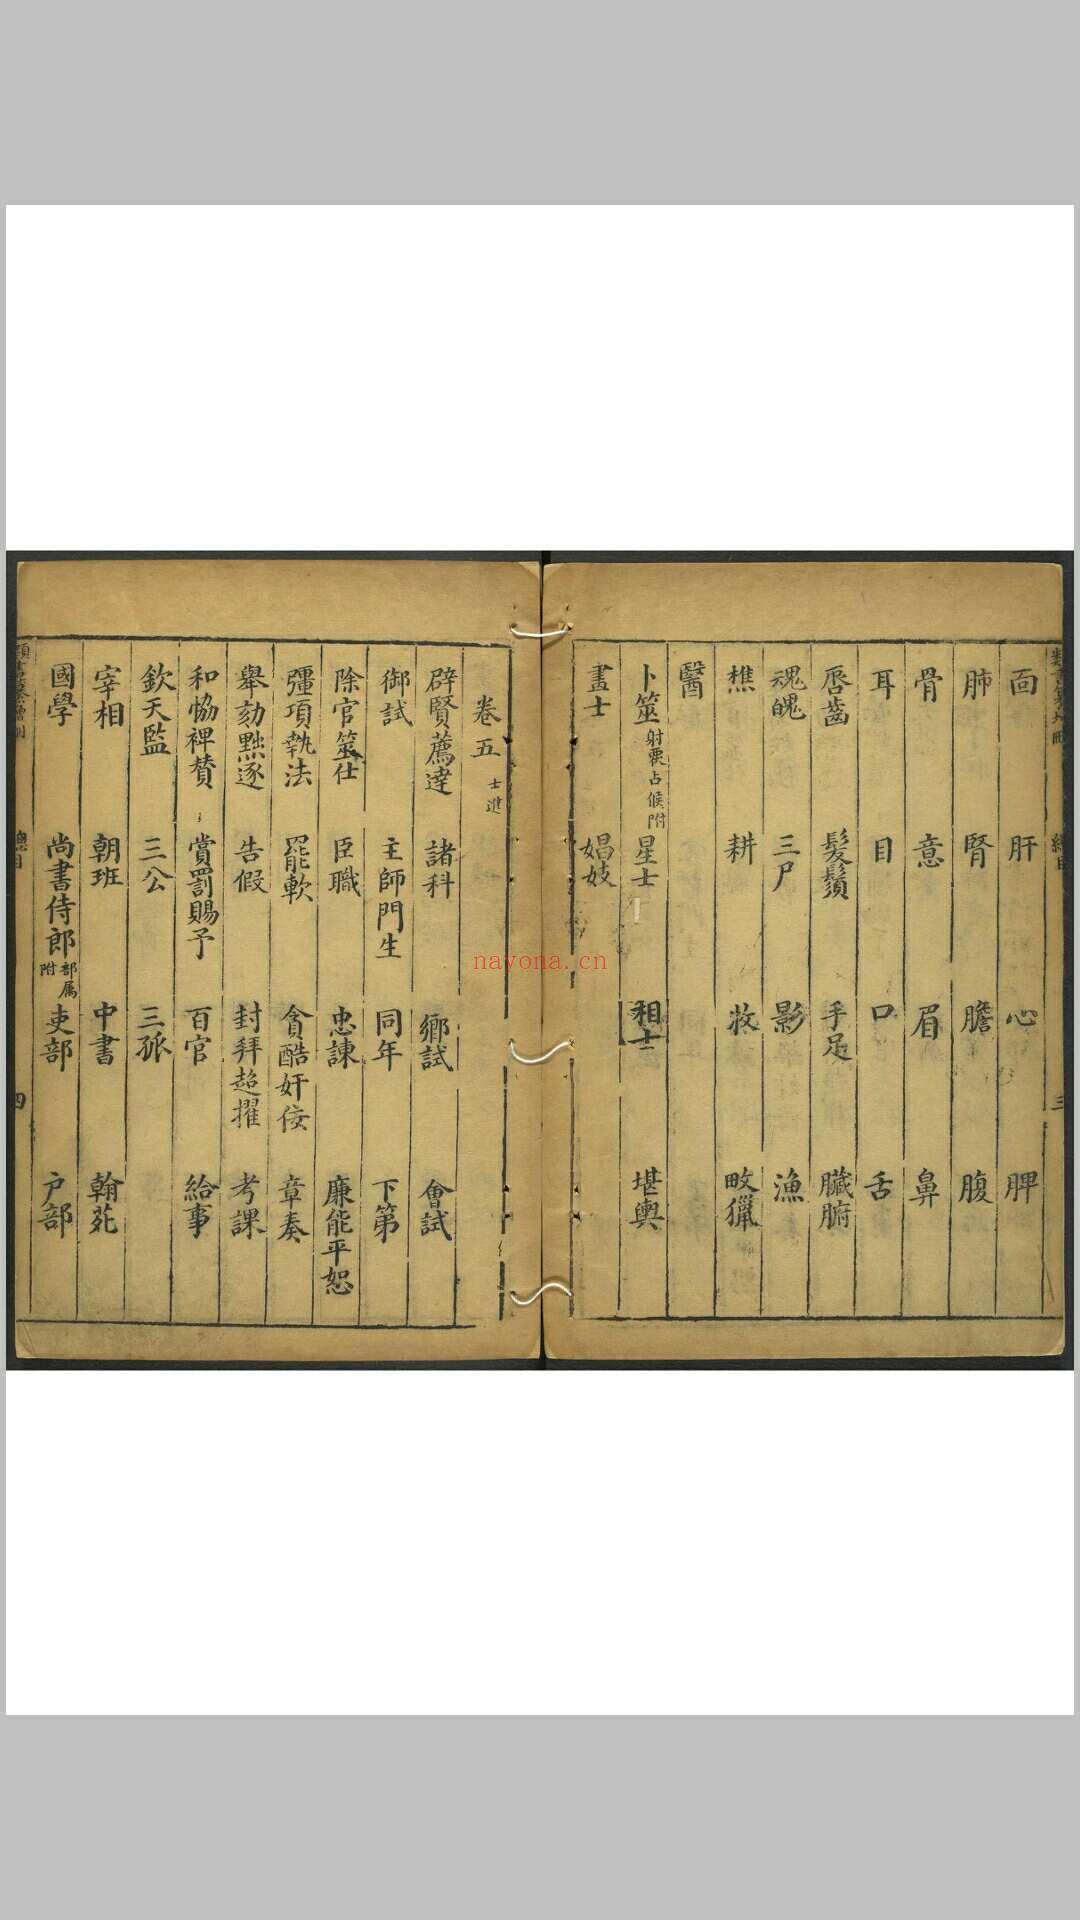 面 肝 心 脾
肺 腎 膽 腹
骨 意 眉 鼻
耳 目 口 舌
唇齒 髮鬚 手足 臟腑
魂魄 三尸 影 漁
樵 耕 牧 畋獵
醫
卜筮 射覆占候附 星士 相士 堪輿
畫士 娼妓
卷五 士進
辟賢薦達 諸科 鄉試 會試
御試 主師門生 同年 下第
除官筮仕 臣職 忠諫 廉能平恕
彊項執法 罷軟 貪酷奸佞 章奏
舉劾黜逐 告假 封拜超擢 考課
和恊裨贊 賞罰賜予 百官 給事
欽天監 三公 三孤
宰相 朝班 中書 翰苑
國學 尚書侍郎 部属附 吏部 户部
總目
四
nayona.cn